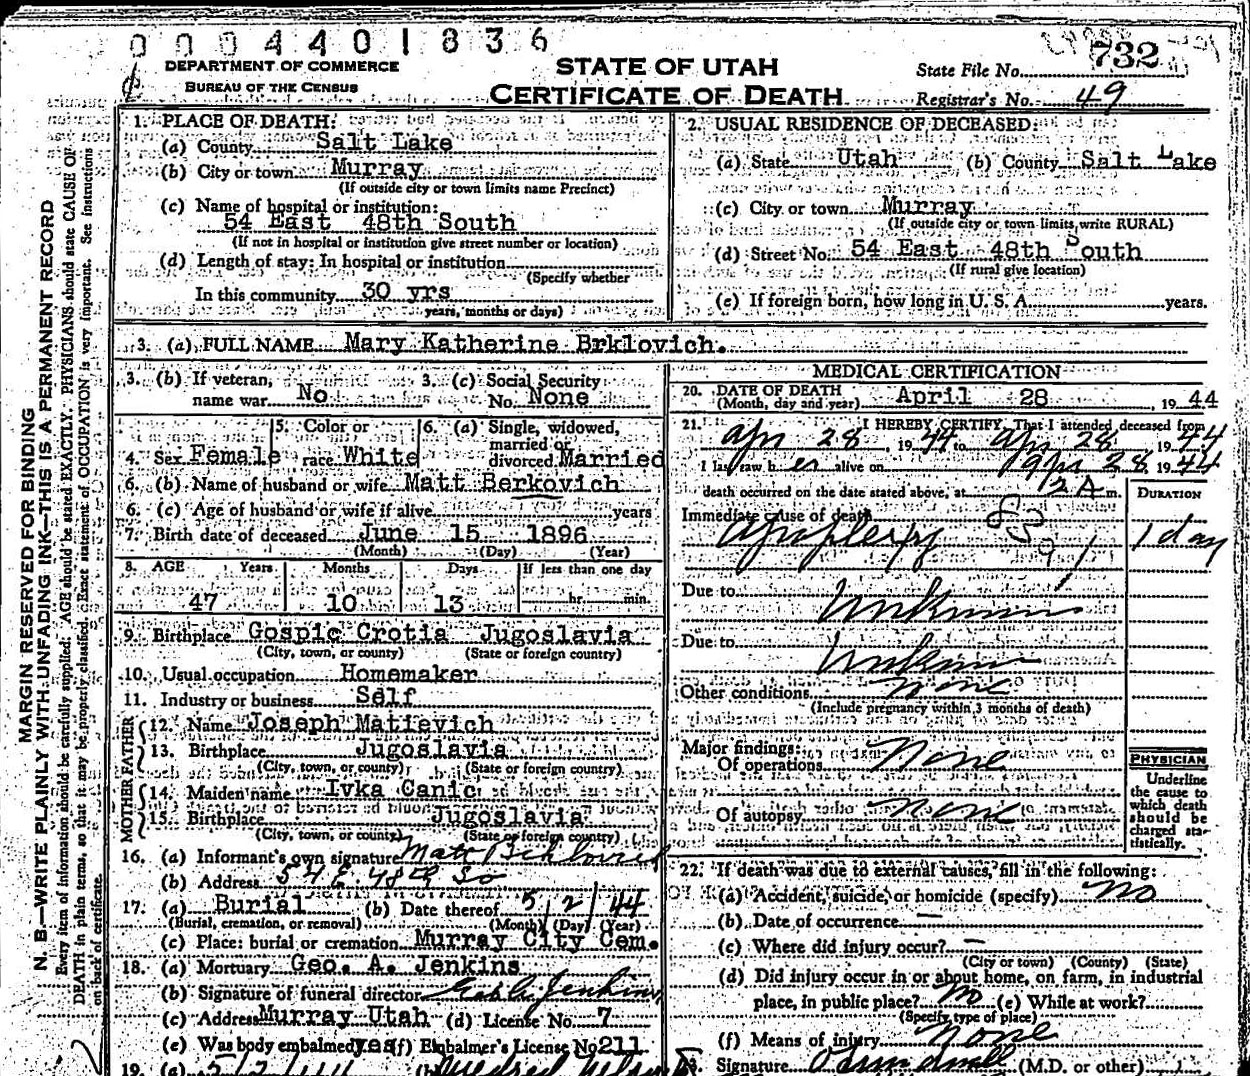 0004401836
DEPARTMENT OF COMMERCE
BUREAU OF THE CENSUS
STATE OF UTAH
CERTIFICATE OF DEATH
State File No. 732
Registrar's No. 49
MARGIN RESERVED FOR BINDING
N. B—WRITE PLAINLY WITH UNFADING INK—THIS IS A PERMANENT RECORD
Every item of information should be carefully supplied. AGE should be stated EXACTLY. PHYSICIANS should state CAUSE OF
DEATH in plain terms, so that it may be properly classified. Exact statement of OCCUPATION is very important. See instructions
on back of certificate.
1. PLACE OF DEATH:
(a) County Salt Lake
(b) City or town Murray
(If outside city or town limits name Precinct)
(c) Name of hospital or institution:
54 East 48th South
(If not in hospital or institution give street number or location)
(d) Length of stay: In hospital or institution
(Specify whether
In this community 30 yrs
years, months or days)
2. USUAL RESIDENCE OF DECEASED:
(a) State Utah (b) County Salt Lake
(c) City or town Murray
(If outside city or town limits, write RURAL)
(d) Street No. 54 East 48th South
(If rural give location)
(e) If foreign born, how long in U. S. A. years.
3. (a) FULL NAME Mary Katherine Brklovich.
3. (b) If veteran, name war No
3. (c) Social Security No. None
4. Sex Female
5. Color or race White
6. (a) Single, widowed, married or divorced Married
6. (b) Name of husband or wife Matt Berkovich
6. (c) Age of husband or wife if alive years
7. Birth date of deceased June 15 1896
(Month) (Day) (Year)
8. AGE Years Months Days If less than one day
47 10 13 hr. min.
9. Birthplace Gospic Crotia Jugoslavia
(City, town, or county) (State or foreign country)
10. Usual occupation Homemaker
11. Industry or business Self
FATHER
12. Name Joseph Matievich
13. Birthplace Jugoslavia
(City, town, or county) (State or foreign country)
MOTHER
14. Maiden name Ivka Canic
15. Birthplace Jugoslavia
(City, town, or county) (State or foreign country)
16. (a) Informant's own signature
(b) Address 54 E. 48th So
17. (a) Burial (b) Date thereof 5/2/44
(Burial, cremation, or removal) (Month) (Day) (Year)
(c) Place: burial or cremation Murray City Cem.
18. (a) Mortuary Geo. A. Jenkins
(b) Signature of funeral director Jenkins
(c) Address Murray Utah (d) License No. 7
(e) Was body embalmed yes (f) Embalmer's License No 211
19. (a) 5/2/44 (b) Mildred
MEDICAL CERTIFICATION
20. DATE OF DEATH
(Month, day and year) April 28, 1944
21. I HEREBY CERTIFY, That I attended deceased from
Apr 28, 1944 to Apr 28, 1944
I last saw her alive on Apr 28 1944
death occurred on the date stated above, at 12 A m.
DURATION
Immediate cause of death 83
Apoplexy 1 day
Due to Unknown
Due to Unknown
Other conditions none
(Include pregnancy within 3 months of death)
Major findings:
Of operations None
Of autopsy none
PHYSICIAN
Underline
the cause to
which death
should be
charged sta-
tistically.
22. If death was due to external causes, fill in the following:
(a) Accident, suicide, or homicide (specify) No
(b) Date of occurrence —
(c) Where did injury occur? —
(City or town) (County) (State)
(d) Did injury occur in or about home, on farm, in industrial
place, in public place? No (e) While at work?
(Specify type of place)
(f) Means of injury none
23. Signature (M.D. or other)